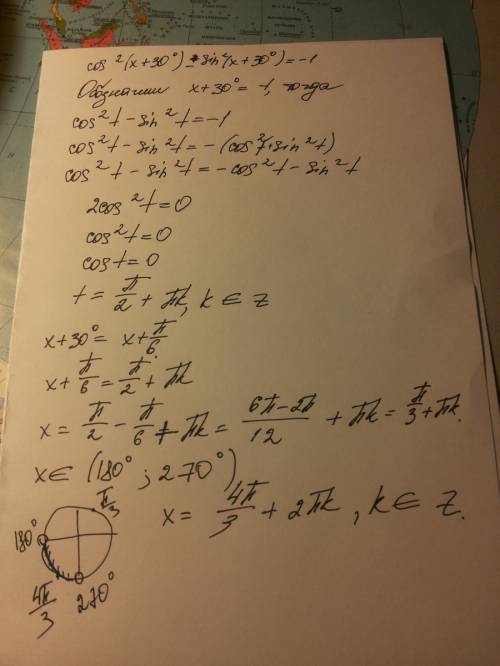 cos²(x+30°) - sin²(x+30°) = -1
Обозначим x+30° = t, тогда
cos²t - sin²t = -1
cos²t - sin²t = -(cos²t+sin²t)
cos²t - sin²t = -cos²t - sin²t
2cos²t = 0
cos²t = 0
cos t = 0
t = π/2 + πk, k ∈ Z
x+30° = x + π/6
x + π/6 = π/2 + πk
x = π/2 - π/6 + πk = (6π-2π)/12 + πk = π/3 + πk.
x ∈ (180°; 270°)
π/3
x = 4π/3 + 2πk, k ∈ Z.
180°
4π/3
270°